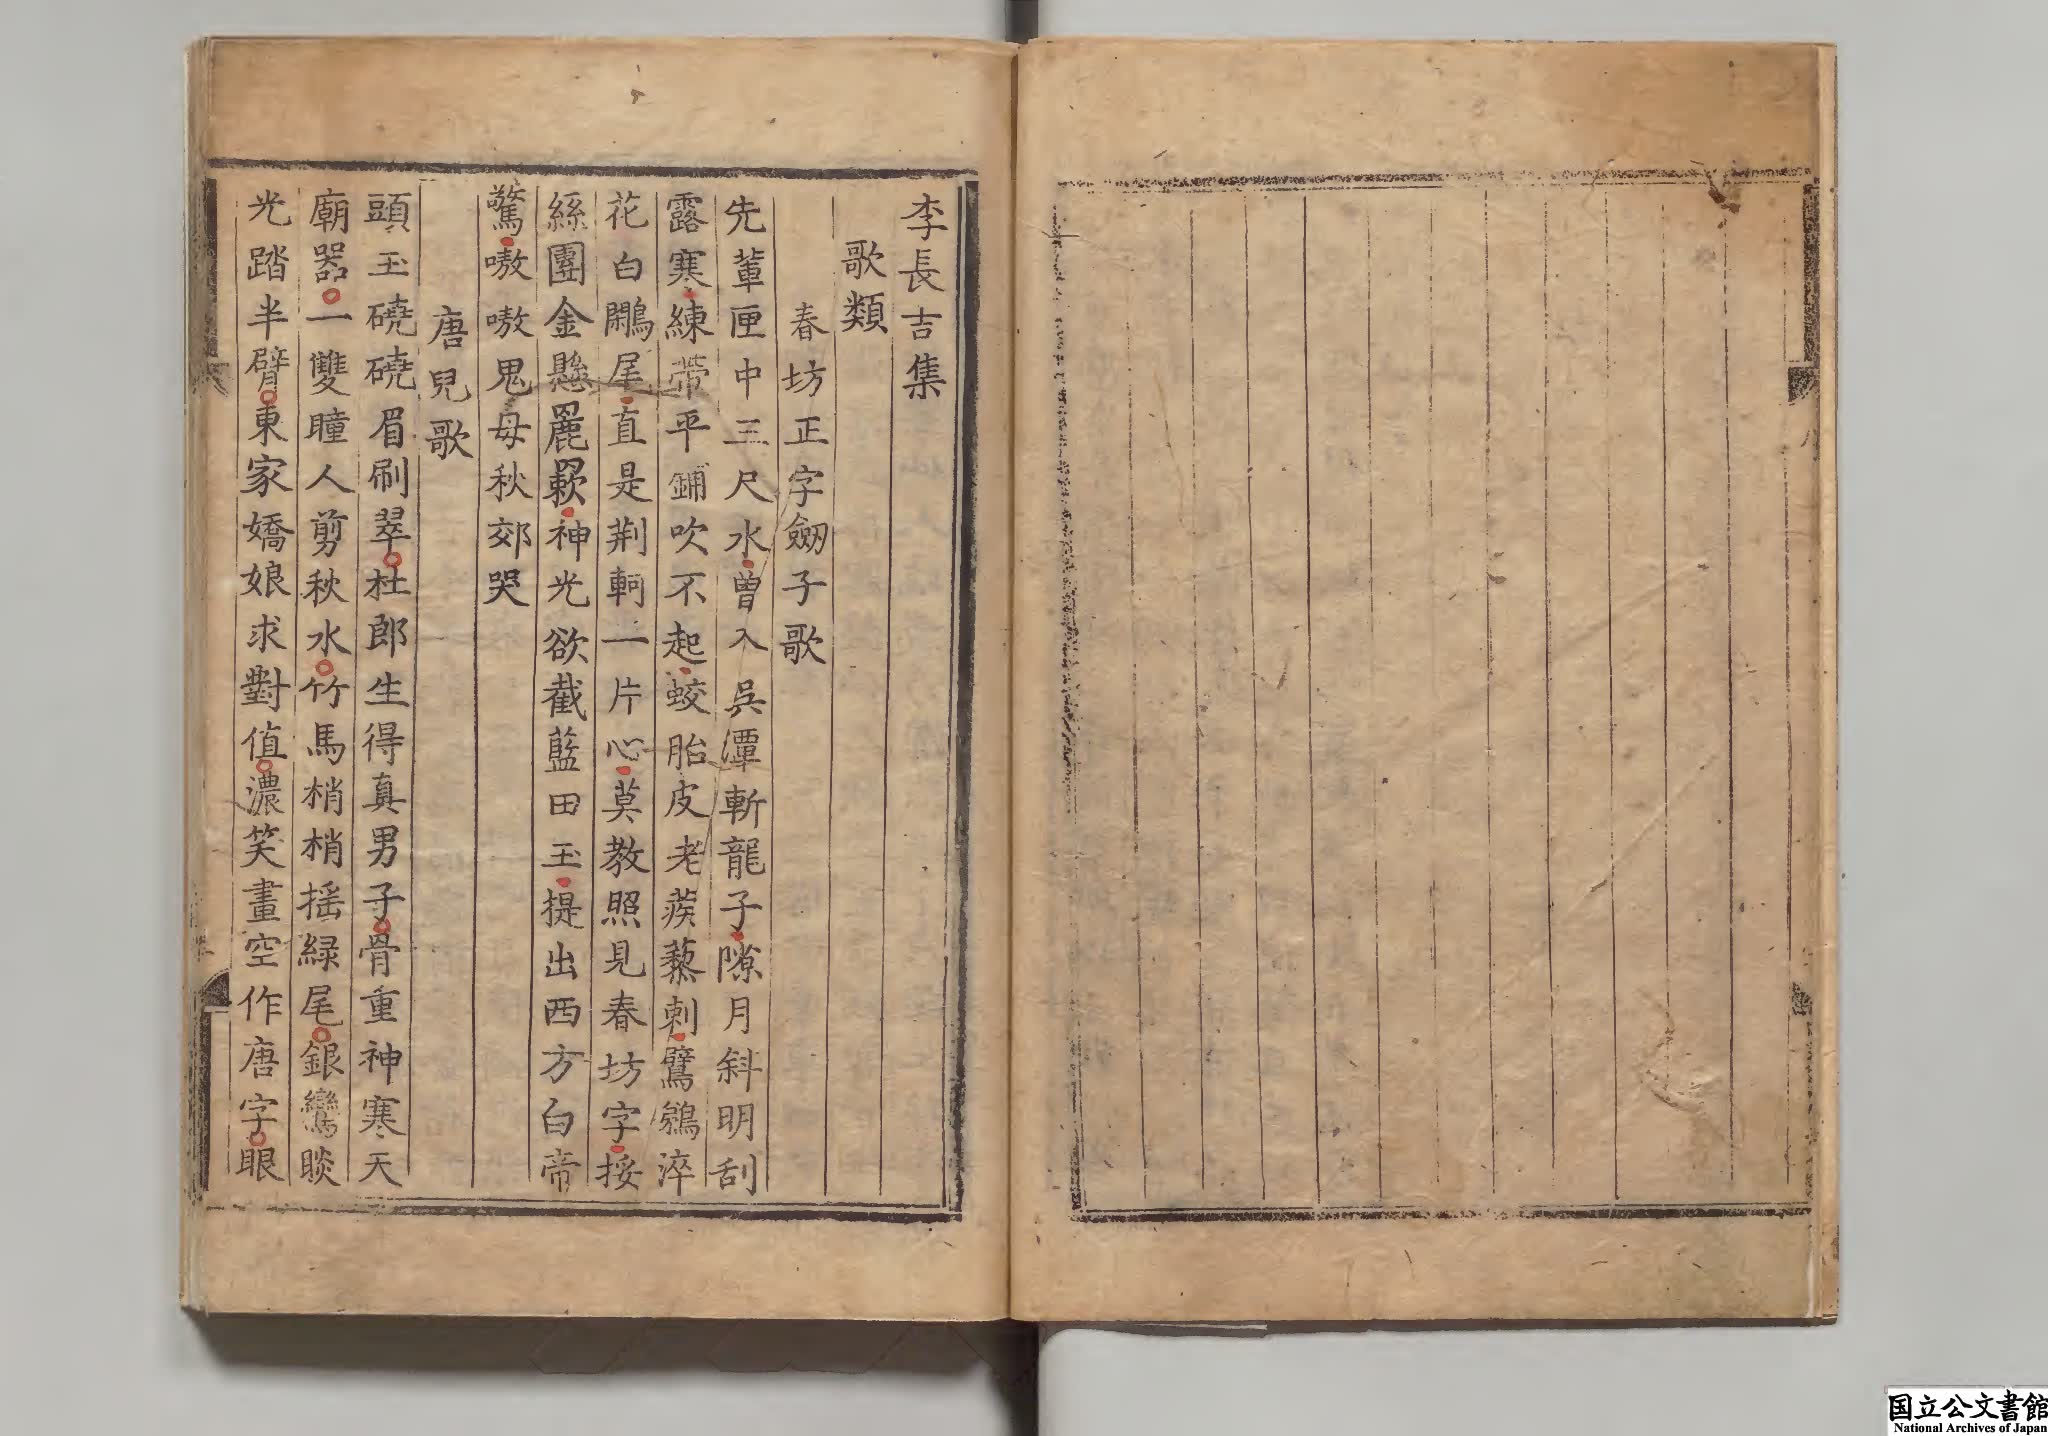 李長吉集
歌類
春坊正字劒子歌
先輩匣中三尺水曽入吳潭斬龍子隙月斜明刮
露寒練帶平鋪吹不起蛟胎皮老蒺藜刺鸊鵜淬
花白鷴尾直是荆軻一片心莫教照見春坊字挼
絲團金懸麗䍡神光欲截藍田玉提出西方白帝
驚嗷嗷鬼母秋郊哭
唐兒歌
頭玉磽磽眉刷翠杜郎生得真男子骨重神寒天
廟器一雙瞳人剪秋水竹馬梢梢揺緑尾銀鸞睒
光踏半臂東家嬌娘求對值濃笑畫空作唐字眼
国立公文書館
National Archives of Japan